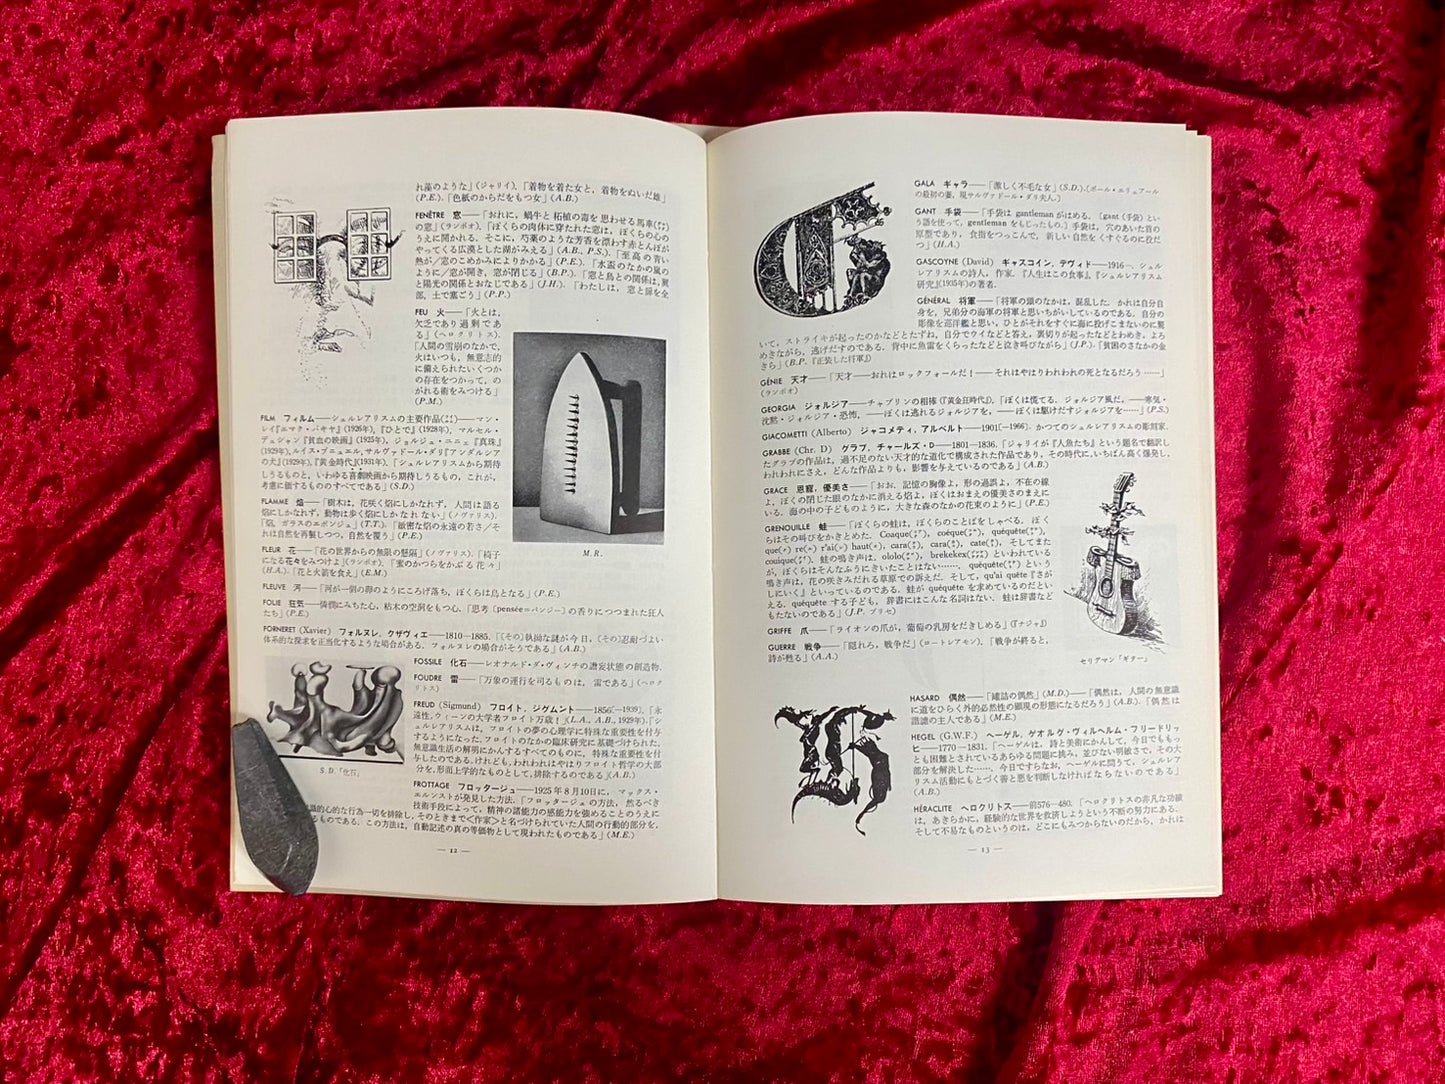 れ藻のような」(ジャリイ).「着物を着た女と, 着物をぬいだ雄」
(P.E.).「色紙のからだをもつ女」(A.B.)
FENÊTRE 窓――「おれに, 蝸牛と 柘植の毒を 思わせる馬車
の窓」(ランボオ).「ぼくらの肉体に穿たれた窓は, ぼくらの心の
うえに開かれる. そこに, 芍薬のような芳香を漂わす赤とんぼが
やってくる広漠とした湖がみえる」(A.B., P.S.).「至高の青い
熱が／窓のこめかみによりかかる」(P.E.).「水盃のなかの風の
ように／窓が開き, 窓が閉じる」(B.P.).「窓と鳥との関係は,
と陽光の関係とおなじである」(J.H.).「わたしは, 窓と扉を全
部, 土で塞ごう」(P.P.)
FEU 火――「火とは,
欠乏であり過剰であ
る」(ヘロクリトス).
「人間の雪崩のなかで,
火はいつも, 無意志的
に備えられたいくつか
の存在をつかって, の
がれる術をみつける」
(P.M.)
M.R.
FILM フィルム――シュルレアリスムの主要作品――マン・
レイ『エマク・バキヤ』(1926年), 『ひとで』(1928年), マルセル・
デュシャン『貧血の映画』(1925年), ジョルジュ・ユニェ『真珠』
(1929年), ルイス・ブニュエル, サルヴァドール・ダリ『アンダルシア
の犬』(1929年), 『黄金時代』(1931年). 「シュルレアリスムから期待
しうるものと, いわゆる喜劇映画から期待しうるもの, これが,
考慮に価するもののすべてである」(S.D.)
FLAMME 焔――「樹木は, 花咲く焔にしかなれず, 人間は語る
焔にしかなれず, 動物は歩く焔にしかなれない」(ノヴァリス).
「焔, ガラスのエポンジュ」(T.T.).「緻密な焔の永遠の若さ／そ
れは自然を再製しつつ, 自然を覆う」(P.E.)
FLEUR 花――「花の世界からの無限の懸隔」(ノヴァリス).「椅子
になる花々をみつけよ」(ランボオ).「蜜のかつらをかぶる花々」
(H.A.).「花と火箭を食え」(E.M.)
FLEUVE 河――「河が一個の卵のようにころげ落ち, ぼくらは鳥となる」(P.E.)
FOLIE 狂気――憐憫にみちた心, 枯木の空洞をもつ心,「思考 (pensée=パンジー) の香りにつつまれた狂人
たち」(P.E.)
FORNERET (Xavier) フォルヌレ, クザヴィエ――1810―1885.「(その) 執拗な謎が今日, (その) 忍耐づよい
体系的な探求を正当化するような場合がある. フォルヌレの場合がそうである」(A.B.)
S.D.「化石」
FOSSILE 化石――レオナルド・ダ・ヴィンチの譫妄状態の創造物.
FOUDRE 雷――「万象の運行を司るものは, 雷である」(ヘロク
リトス)
FREUD (Sigmund) フロイト, ジグムント――1856[―1939].「永
遠性, ウィーンの大学者フロイト万歳！」(L.A., A.B., 1929年).「シ
ュルレアリスムは, フロイトの夢の心理学に特殊な重要性を付与
するようになった. フロイトのなかの臨床研究に基礎づけられた,
無意識生活の解明にかんするすべてのものに, 特殊な重要性を付
与したのである. けれども, われわれはやはりフロイト哲学の大部
分を, 形而上学的なものとして, 排除するのである」(A.B.)
FROTTAGE フロッタージュ――1925年8月10日に, マックス・
エルンストが発見した方法.「フロッタージュの方法, 然るべき
技術手段によって, 精神の諸能力の感能力を強めることのうえに
識的心的な行為一切を排除し, そのときまで＜作家＞と名づけられていた人間の行動的部分を,
るものである. この方法は, 自動記述の真の等価物として現われたものである」(M.E.)
― 12 ―
GALA ギャラ――「激しく不毛な女」(S.D.).[ポール・エリュアール
の最初の妻, 現サルヴァドール・ダリ夫人.]
GANT 手袋――「手袋は gantleman がはめる. [gant (手袋) とい
う語を使って, gentleman をもじったもの.] 手袋は, 穴のあいた首の
原型であり, 食指をつっこんで, 新しい自然をくすぐるのに役だ
つ」(H.A.)
GASCOYNE (David) ギャスコイン, デヴィド――1916―. シュル
レアリスムの詩人, 作家.『人生はこの食事』,『シュルレアリスム
研究』(1935年)の著者.
GÉNÉRAL 将軍――「将軍の頭のなかは, 混乱した. かれは自分自
身を, 兄弟分の海軍の将軍と思いちがいしているのである. 自分の
彫像を巡洋艦と思い, ひとがそれをすぐに海に投げこまないのに驚
いて, ストライキが起ったのかなどとたずね, 自分でウイなどと答え, 裏切りが起ったなどとわめき, よろ
めきながら, 逃げだすのである. 背中に魚雷をくらったなどと泣き叫びながら」(J.P.).「貧困のさなかの金
きら」(B.P.『正装した将軍』)
GÉNIE 天才――「天才――おれはロックフォールだ！――それはやはりわれわれの死となるだろう……」
(ランボオ)
GEORGIA ジョルジア――チャプリンの相棒 (『黄金狂時代』).「ぼくは慌てる. ジョルジア風だ, ――寒気・
沈黙・ジョルジア・恐怖, ――ぼくは逃れるジョルジアを, ――ぼくは駆けだすジョルジアを……」(P.S.)
GIACOMETTI (Alberto) ジャコメティ, アルベルト――1901[―1966]. かつてのシュルレアリスムの彫刻家.
GRABBE (Chr. D) グラブ, チャールズ・D――1801―1836.「ジャリイが『人魚たち』という題名で翻訳し
たグラブの作品は, 過不足のない天才的な道化で構成された作品であり, その時代に, いちばん高く爆発し,
われわれにさえ, どんな作品よりも, 影響を与えているのである」(A.B.)
GRACE 恩寵, 優美さ――「おお, 記憶の胸像よ, 形の過誤よ, 不在の線
よ, ぼくの閉じた眼のなかに消える焔よ, ぼくはおまえの優美さのまえに
いる. 海の中の子どものように, 大きな森のなかの花束のように」(P.E.)
GRENOUILLE 蛙――「ぼくらの蛙は, ぼくらのことばをしゃべる. ぼく
らはその叫びをかきとめた. Coaque, coéque, quéquête,
que re r'ai haut, cara, cara, cate, そしてまた
couique, 蛙の鳴き声は, ololo, brekekex といわれている
が, ぼくらはそんなふうにきいたことはない……, quéquête という
鳴き声は, 花の咲きみだれる草原での訴えだ. そして, qu'ai quête『さが
しにいく』といっているのである. 蛙が quéquête を求めているのだとい
える. quéquête する子ども, 辞書にはこんな名詞はない. 蛙は辞書など
もたないのである」(J.P. ブリセ)
GRIFFE 爪――「ライオンの爪が, 葡萄の乳房をだきしめる」(『ナジャ』)
GUERRE 戦争――「隠れろ, 戦争だ」(ロートレアモン).「戦争が終ると,
詩が甦る」(A.A.)
セリグマン「ギター」
HASARD 偶然――「罐詰の偶然」(M.D.)――「偶然は, 人間の無意識
に道をひらく外的必然性の顕現の形態になるだろう」(A.B.).「偶然は
諧謔の主人である」(M.E.)
HEGEL (G.W.F.) ヘーゲル, ゲオルグ・ヴィルヘルム・フリードリッ
ヒ――1770―1831.「ヘーゲルは, 詩と美術にかんして, 今日でももっ
とも困難とされているあらゆる問題に挑み, 並びない明敏さで, その大
部分を解決した……. 今日ですらなお, ヘーゲルに問うて, シュルレア
リスム活動にもとづく善と悪を判断しなければならないのである」
(A.B.)
HÉRACLITE ヘロクリトス――前576―480.「ヘロクリトスの非凡な功績
は, あきらかに, 経験的な世界を救済しようという不断の努力にある.
そして不易なものというのは, どこにもみつからないのだから, かれは
― 13 ―